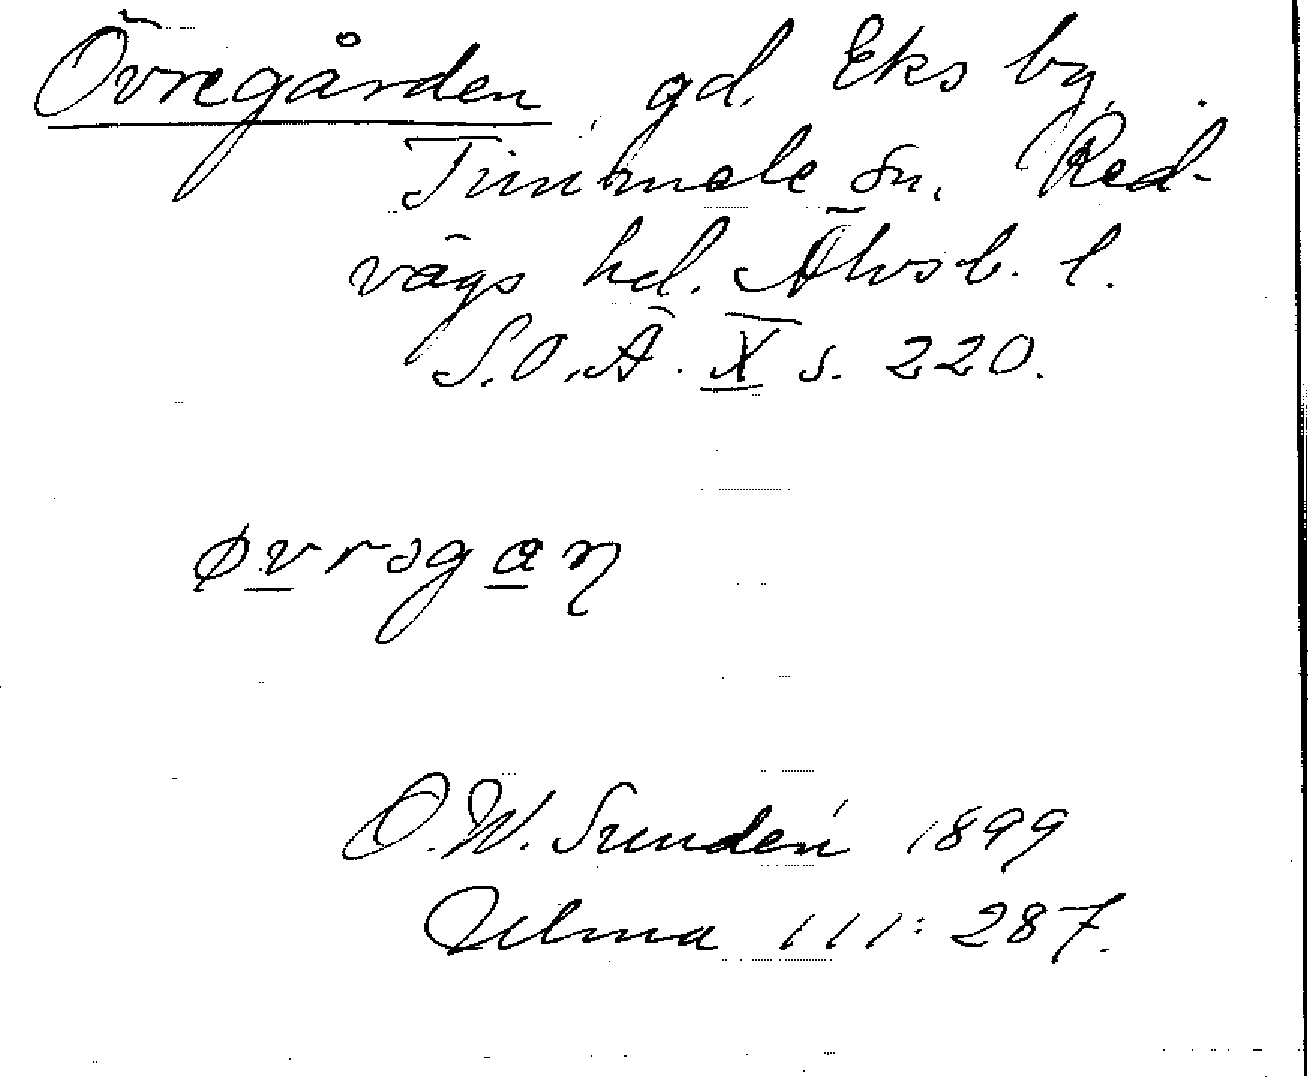 Övregården, gd. Eks by,
Timmele sn. Red-
vägs hd. Älvsb. l.
S.O.Ä. X s. 220.
øvrəgaɳ
O.W. Sundén 1899
Ulma 111: 287.